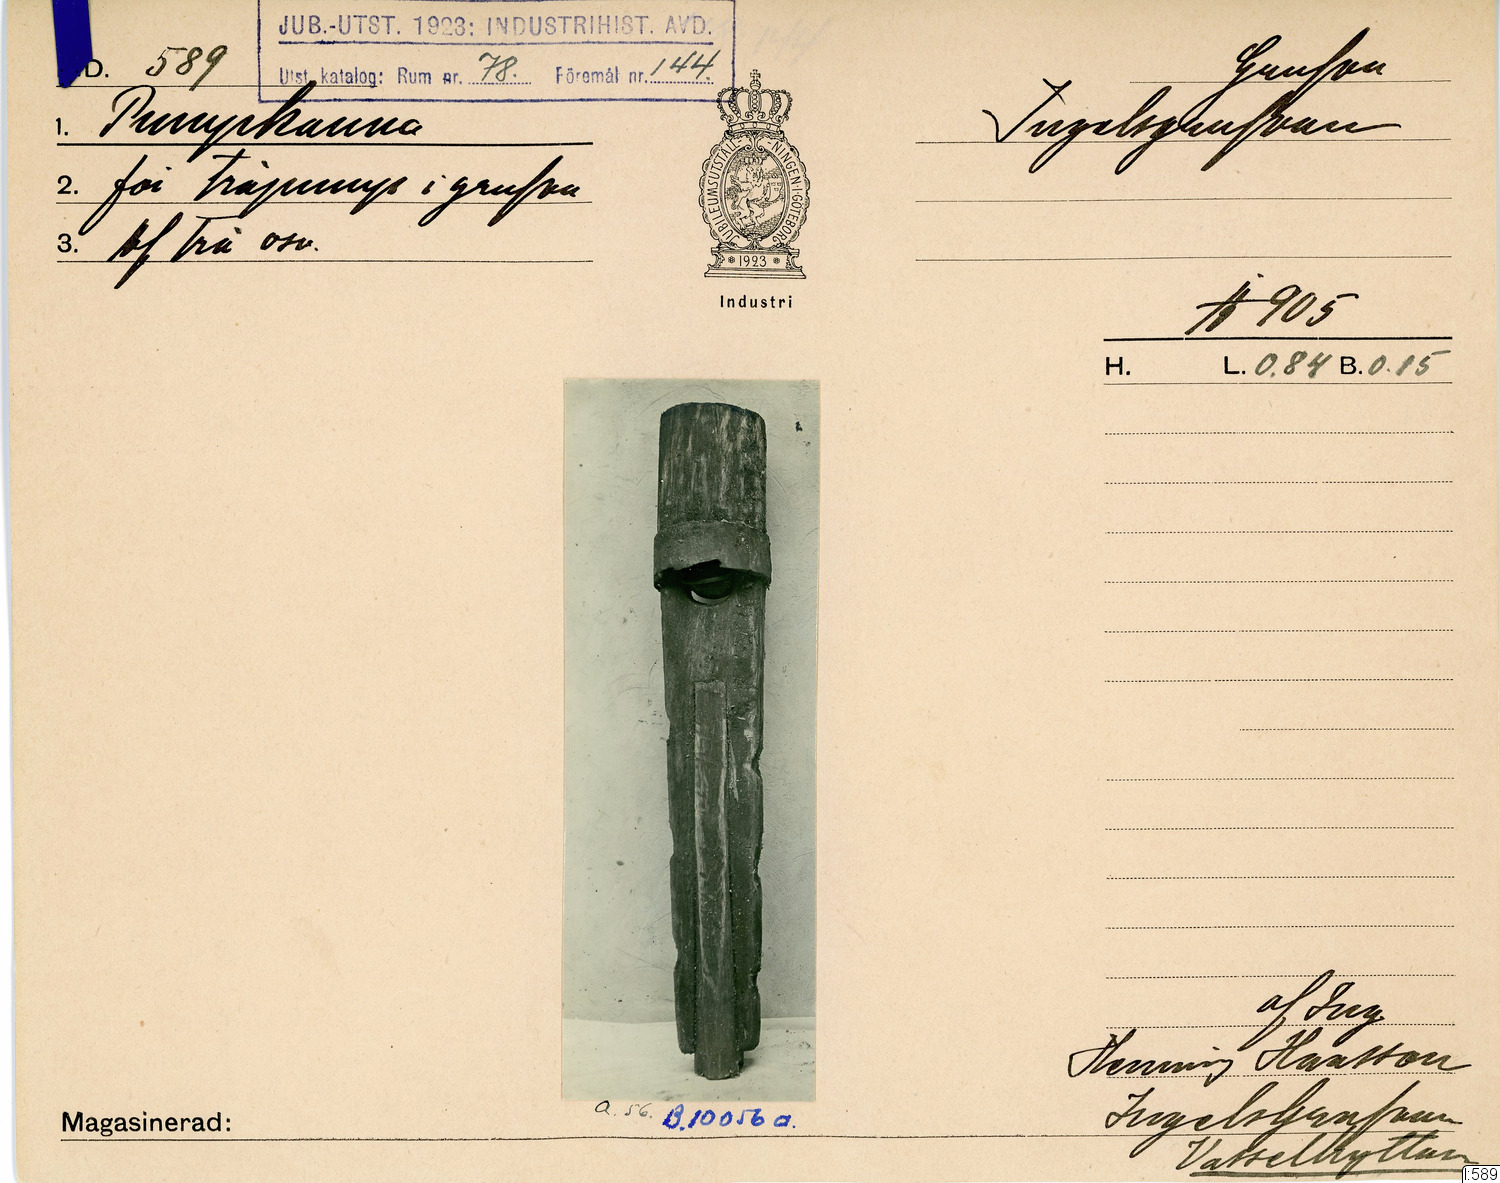 JUB.-UTST. 1923: INDUSTRIHIST. AVD.
Utst. katalog: Rum nr. 78. Föremål nr. 144.
D. 589
1. Pumpkanna
2. för träpump i grufva
3. Af trä osv.
JUBILEUMSUTSTÄLLNINGEN I GÖTEBORG
1923
Industri
Grufva
Ingelsgrufvan
905
H. L. 0.84 B. 0.15
af Ing
Henning
Ingelsgrufvan
Vasselhyttan
a. 56. B.10056 a.
Magasinerad:
I:589